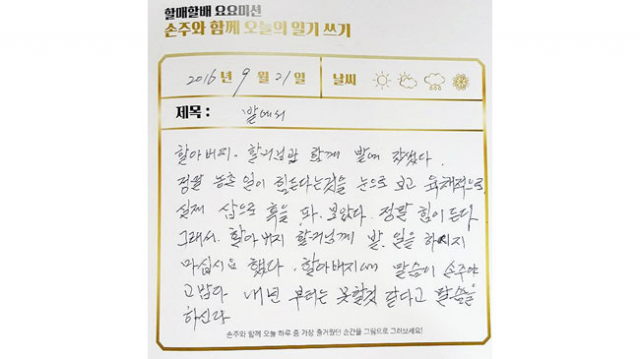 할매할배 요요미션
손주와 함께 오늘의 일기 쓰기
2016년 9월 21일 날씨
제목: 밭에서
할아버지. 할머님과 함께 밭에 갔었다.
정말 농촌 일이 힘든다는것을 눈으로 보고 육체적으로
실제 삽으로 흙을 파. 보았다. 정말 힘이 든다
그래서. 할아버지 할머님께 밭.일을 하시지
마십시요 했다. 할아버지에 말씀이 손주야
고맙다 내년 부터는 못할것 같다고 말씀을
하신다
손주와 함께 오늘 하루 중 가장 즐거웠던 순간을 그림으로 그려보세요!